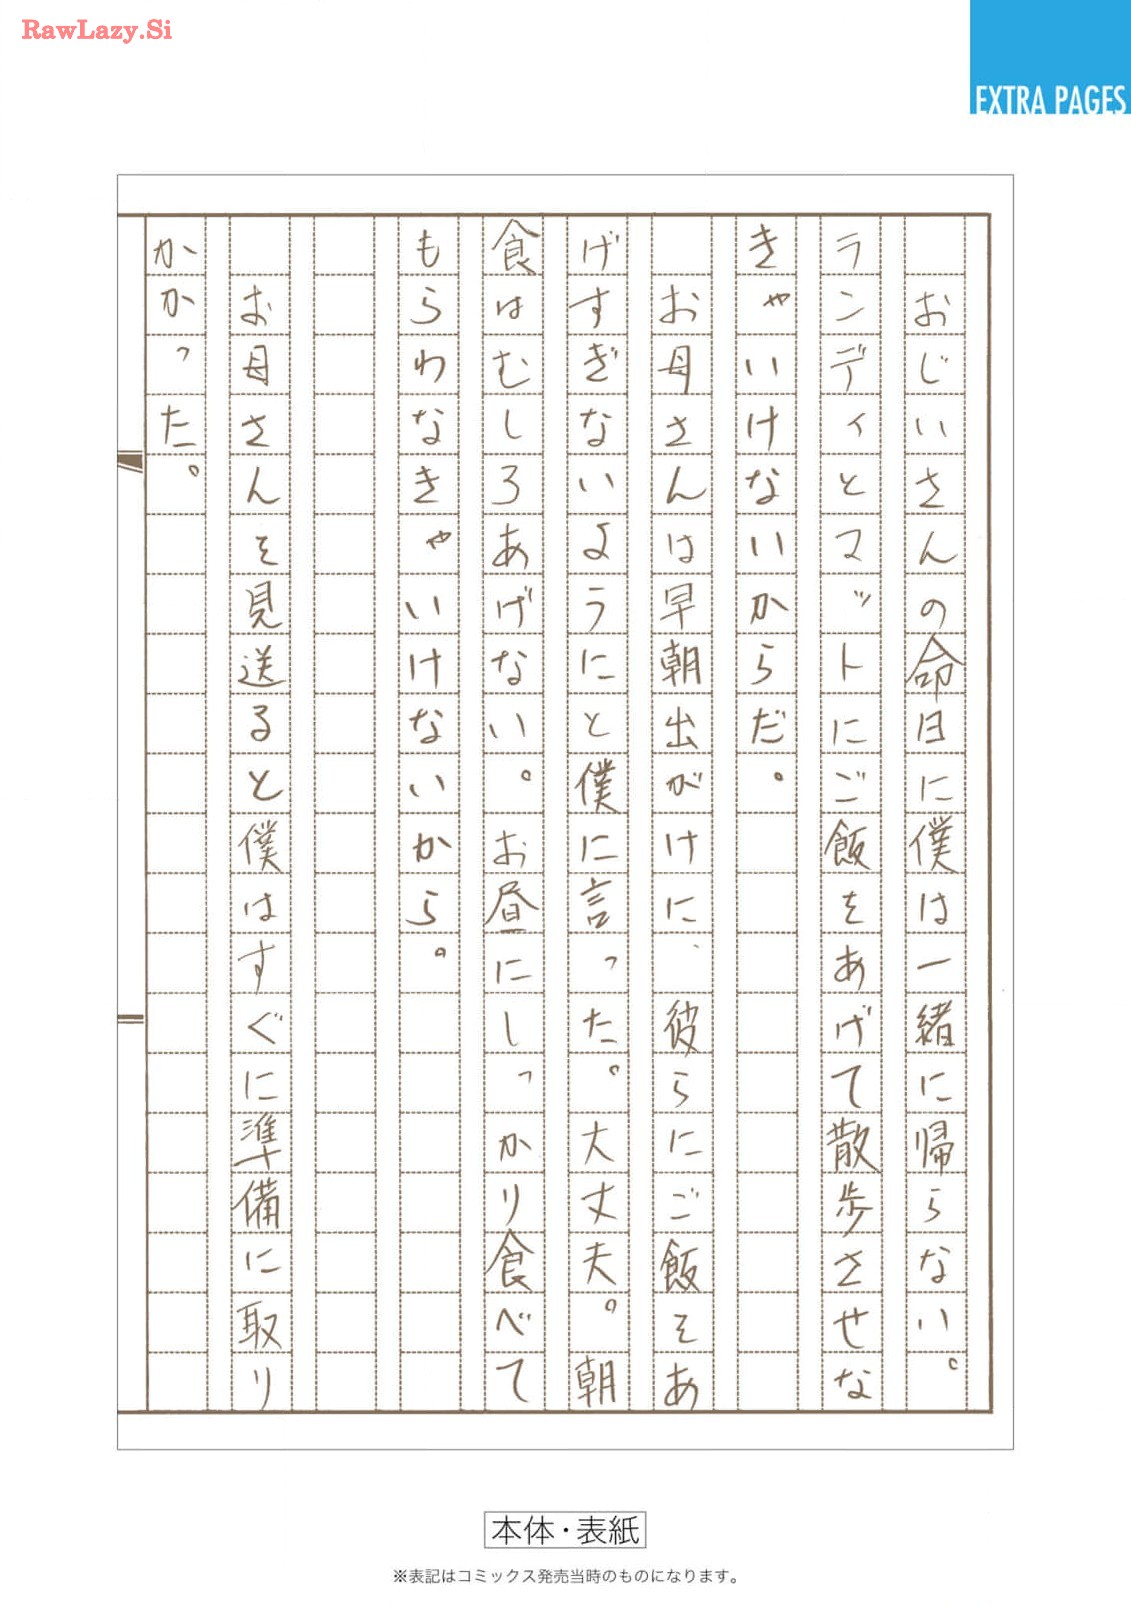 RawLazy.Si
EXTRA PAGES
おじいさんの命日に僕は一緒に帰らない。
ランディとマットにご飯をあげて散歩させな
きゃいけないからだ。
お母さんは早朝出がけに、彼らにご飯をあ
げすぎないようにと僕に言った。大丈夫。朝
食はむしろあげない。お昼にしっかり食べて
もらわなきゃいけないから。
お母さんを見送ると僕はすぐに準備に取り
かかった。
本体・表紙
※表記はコミックス発売当時のものになります。